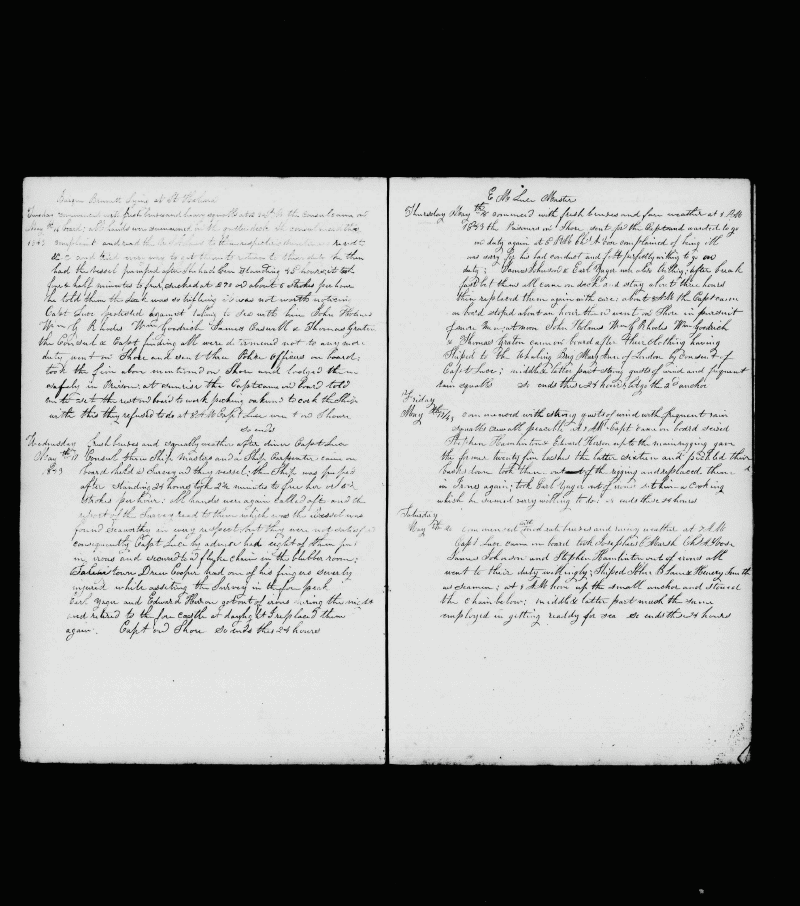 Bennett Lying at St Helena
commenced with fresh breezes and heavy squalls at the Consul came on
board; All hands were summoned in the
complaint and read the to them
&c and tried every way to get them to return to their duty he then
had the vessel pumped after she had been standing 45 hours; it took
four & half minutes to free, sucked at 270 or about 6 strokes per hour
he told them the leak was so trifling it was not worth noticing
Capt Luce protested against taking to Sea with him John Holmes
Wm G Rhodes Wm Goodrich James & Thomas Graton
the Consul & Capt finding All were determined not to any more
duty, went on Shore and sent their Police Officers on board;
took the five above mentioned on Shore and lodged them
safely in Prison; at sunrise the Capt came on board told
me to set the rest on board to work picking oakum to cork the Ship
with this they refused to do at 8 AM Capt Luce went on Shore
so ends
Wednesday fresh breezes and squally weather after diner Capt Luce
May th 17 Consul three Ship Masters and a Ship Carpenter came on
1843 board held a Survey on the vessel; the Ship was pumped
after Standing 24 hours took 2½ minutes to free her or
strokes per hour; All hands were again called aft and the
report of the Survey read to them which was the vessel was
found seaworthy in every respect, but they were not satisfied
consequently Capt Luce by advise had eight of them put
in irons and secured to a fluke chain in the blubber room;
town Drew Cooper had one of his fingers severly
injured while assisting the Survey in the fore peak
Earl Yager and Edward Heron got out of irons during the night
and retired to the fore castle at daylight I replaced them
again. Capt on Shore so ends these 24 hours
E M Luce Master
Thursday May th 18 commenced with fresh breezes and fare weather at 1 PM
1843 the Prisoners on Shore sent for the Capt and wanted to go
on duty again at 5 PM Chs A Vose complained of being ill
was sorry for his bad conduct and felt perfectly willing to go on
duty; James Johnson & Earl Yager were also willing; after break
fast let them all came on deck and stay about three hours
then replaced them again with care; about 8 AM the Capt came
on board stoped about an hour then went on Shore in pursuit
of more Men; at noon John Holmes Wm G Rhodes Wm Goodrich
& Thomas Graton came on board after their Clothing having
Shiped to the Whaling Brig Mary Ane of London by consent of
Capt Luce; middle & latter part strong gusts of wind and frequent
rain squalls so ends these 24 hours lays the 2nd anchor
Friday
May th 19/43 commenced with strong gusts of wind with frequent rain
squalls crew all peaceble At 8 AM Capt came on board seized
Stephen Hamlinton & Edward Heron up to the main rigging gave
the former twenty five lashes the latter sixteen and pickled their
backs down took them out of the rigging and replaced them
in Irons again; took Earl Yager out of irons set him a Cooking
which he seemed very willing to do; so ends these 24 hours
Saturday
May th 20 commenced with moderate breezes and rainy weather at 7 AM
Capt Luce came on board took Josephas C Marsh Chs A Vose
James Johnson and Stephen Hamlinton out of irons all
went to their duty willingly; Shiped John B & Henery Smith
as seamen; at 8 AM hove up the small anchor and stowed
the Chain below; middle & latter part much the same
employed in getting readdy for sea so ends these 24 hours